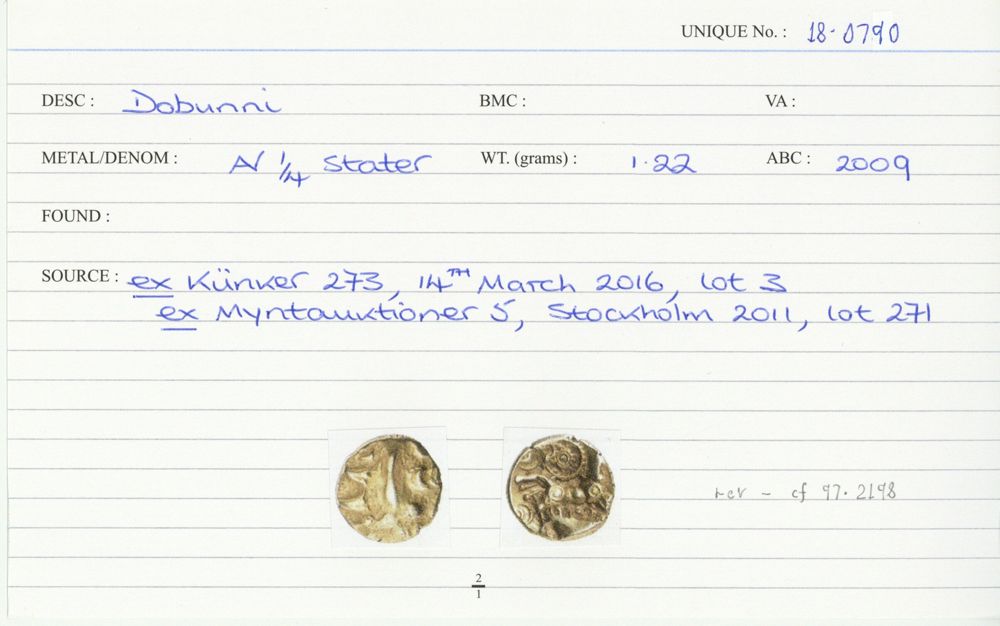 UNIQUE No. : 18-0790
DESC : Dobunni BMC : VA :
METAL/DENOM : AV 1/4 Stater WT. (grams) : 1.22 ABC : 2009
FOUND :
SOURCE : ex Künker 273, 14TH March 2016, lot 3
ex Myntauktioner 5, Stockholm 2011, lot 271
rev - cf 97.2198
2/1